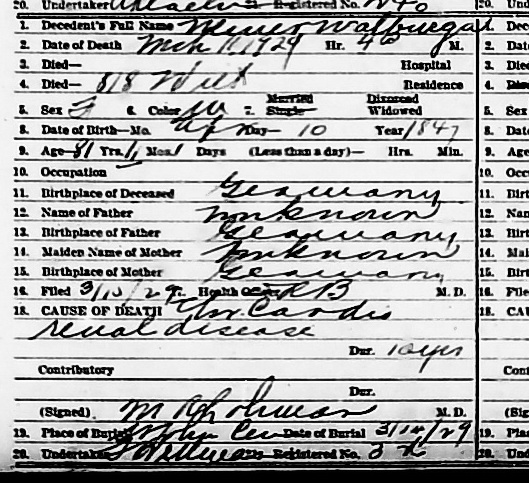 20. Undertaker Registered No. 240
1. Decedent's Full Name Meiner Walburga 1. Dece
2. Date of Death Mch 11, 1929 Hr. 4 M. 2. Date
3. Died— Hospital 3. Died
4. Died— 818 Residence 4. Died
5. Sex F 6. Color W 7. Married Single Divorced Widowed 5. Sex
8. Date of Birth—Mo. Apr Day 10 Year 1847 8. Date
9. Age—81 Yrs. 11 Mos. 1 Days (Less than a day)— Hrs. Min. 9. Age
10. Occupation 10. Occu
11. Birthplace of Deceased Germany 11. Birt
12. Name of Father unknown 12. Nam
13. Birthplace of Father Germany 13. Birt
14. Maiden Name of Mother unknown 14. Maid
15. Birthplace of Mother Germany 15. Birt
16. Filed 3/13/29 Health Officer RB M. D. 16. File
18. CAUSE OF DEATH Chr Cardio 18. CAUS
renal disease
Dur. 10 yrs
Contributory Cont
Dur.
(Signed) M. D. (Sign
19. Place of Burial St John Cem Date of Burial 3/14/29 19. Plac
20. Undertaker Registered No. 3 20. Unde